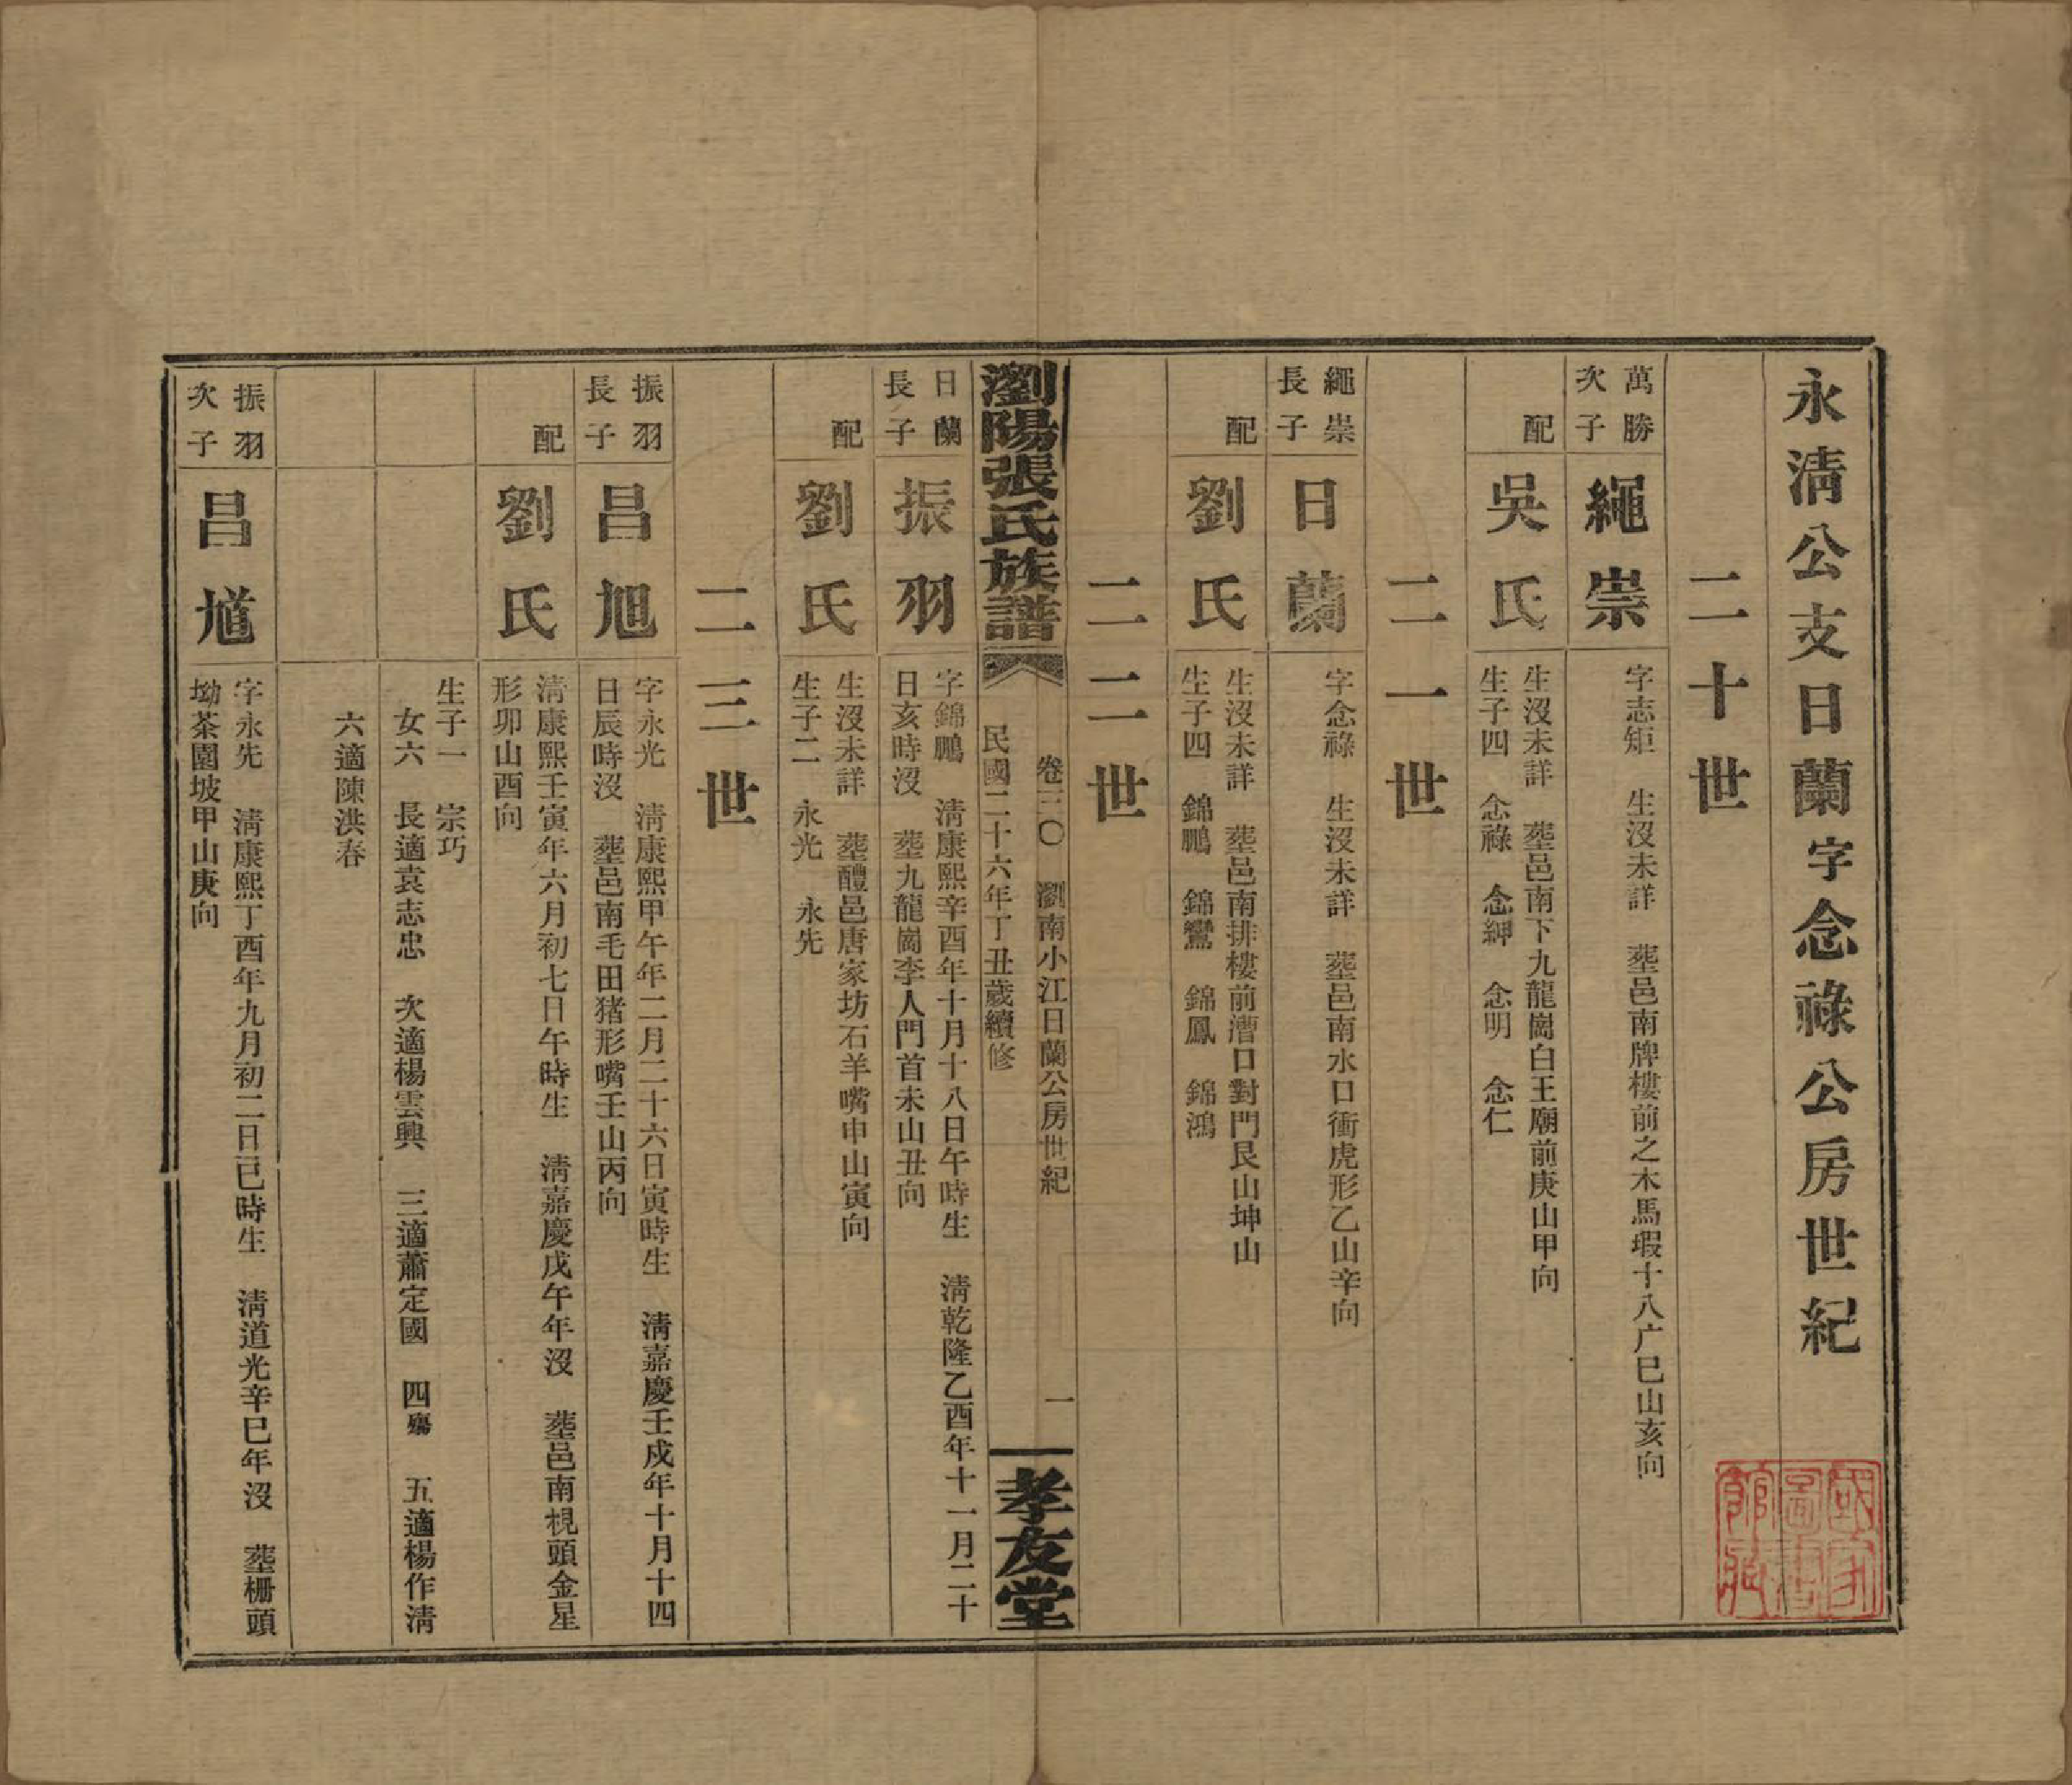 永淸公支日蘭字念祿公房世紀
二十世
萬勝
次子
繩崇
字志矩　生沒未詳　塟邑南牌樓前之木馬塅十八广巳山亥向
配
吳氏
生沒未詳　塟邑南下九龍崗白王廟前庚山甲向
生子四　念祿　念紳　念明　念仁
二一世
繩崇
長子
日蘭
字念祿　生沒未詳　塟邑南水口衝虎形乙山辛向
配
劉氏
生沒未詳　塟邑南排樓前漕口對門艮山坤山
生子四　錦鵬　錦鸞　錦鳳　錦鴻
二二世
瀏陽張氏族譜
卷三〇　瀏南小江日蘭公房世紀　一
民國二十六年丁丑歲續修
孝友堂
日蘭
長子
振羽
字錦鵬　淸康熙辛酉年十月十八日午時生　淸乾隆乙酉年十一月二十
日亥時沒　塟九龍崗李人門首未山丑向
配
劉氏
生沒未詳　塟醴邑唐家坊石羊嘴申山寅向
生子二　永光　永先
二三世
振羽
長子
昌旭
字永光　淸康熙甲午年二月二十六日寅時生　淸嘉慶壬戍年十月十四
日辰時沒　塟邑南毛田猪形嘴壬山丙向
配
劉氏
淸康熙壬寅年六月初七日午時生　淸嘉慶戊午年沒　塟邑南梘頭金星
形卯山酉向
生子一　宗巧
女六　長適袁志忠　次適楊雲興　三適蕭定國　四殤　五適楊作淸
六適陳洪春
振羽
次子
昌馗
字永先　淸康熙丁酉年九月初二日巳時生　淸道光辛巳年沒　塟柵頭
坳茶園坡甲山庚向
國家圖書館藏